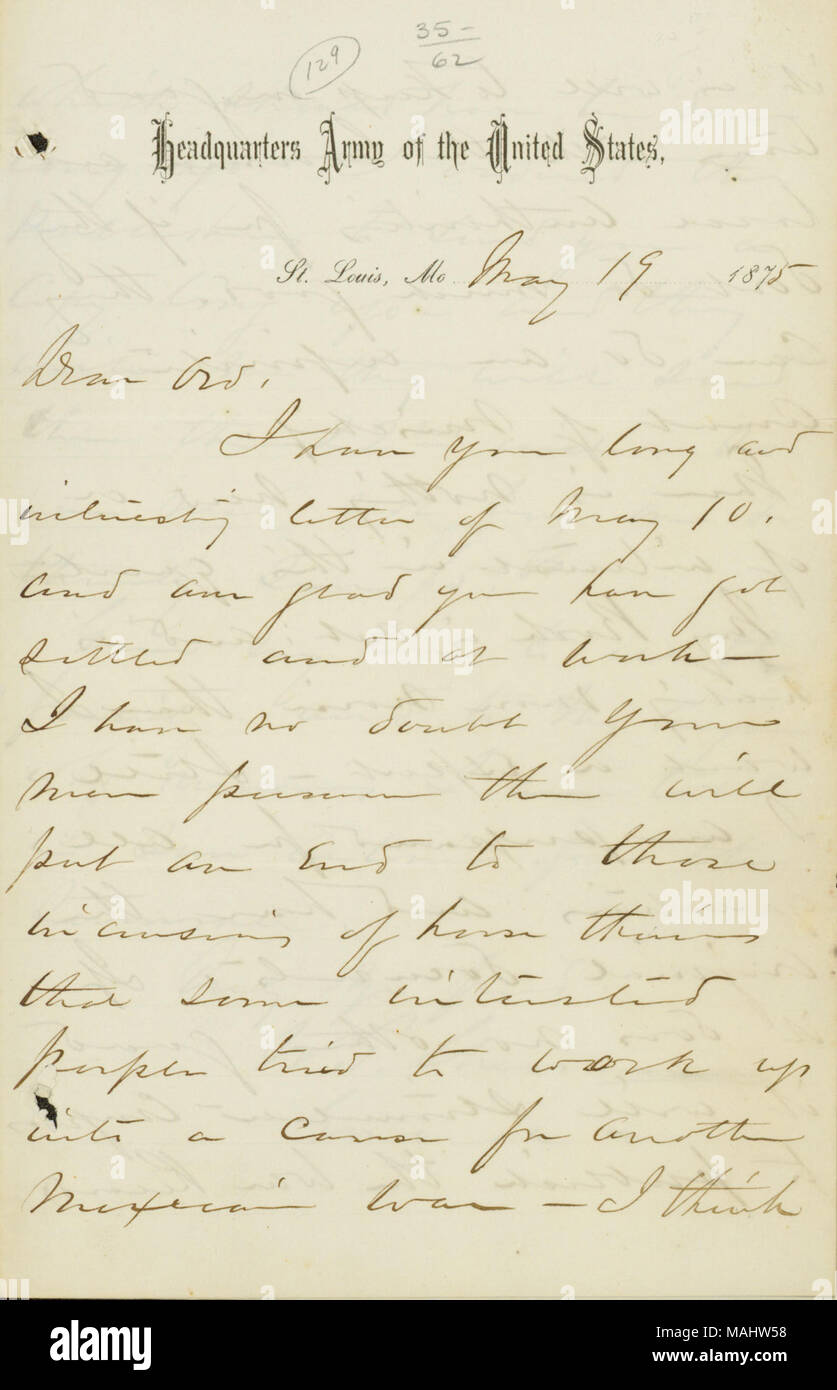 35-
62
129
Headquarters Army of the United States,
St. Louis, Mo May 19 1875
Dear Ord.
I have your long and
interesting letter of May 10.
and am glad you have got
settled and at work—
I have no doubt your
mere presence there will
put an End to those
incursions of horse thieves
that some interested
people tried to work up
into a cause for another
Mexican war — I think
alamy
alamy
a
a
a
a
alamy
Image ID: MAHW58
www.alamy.com